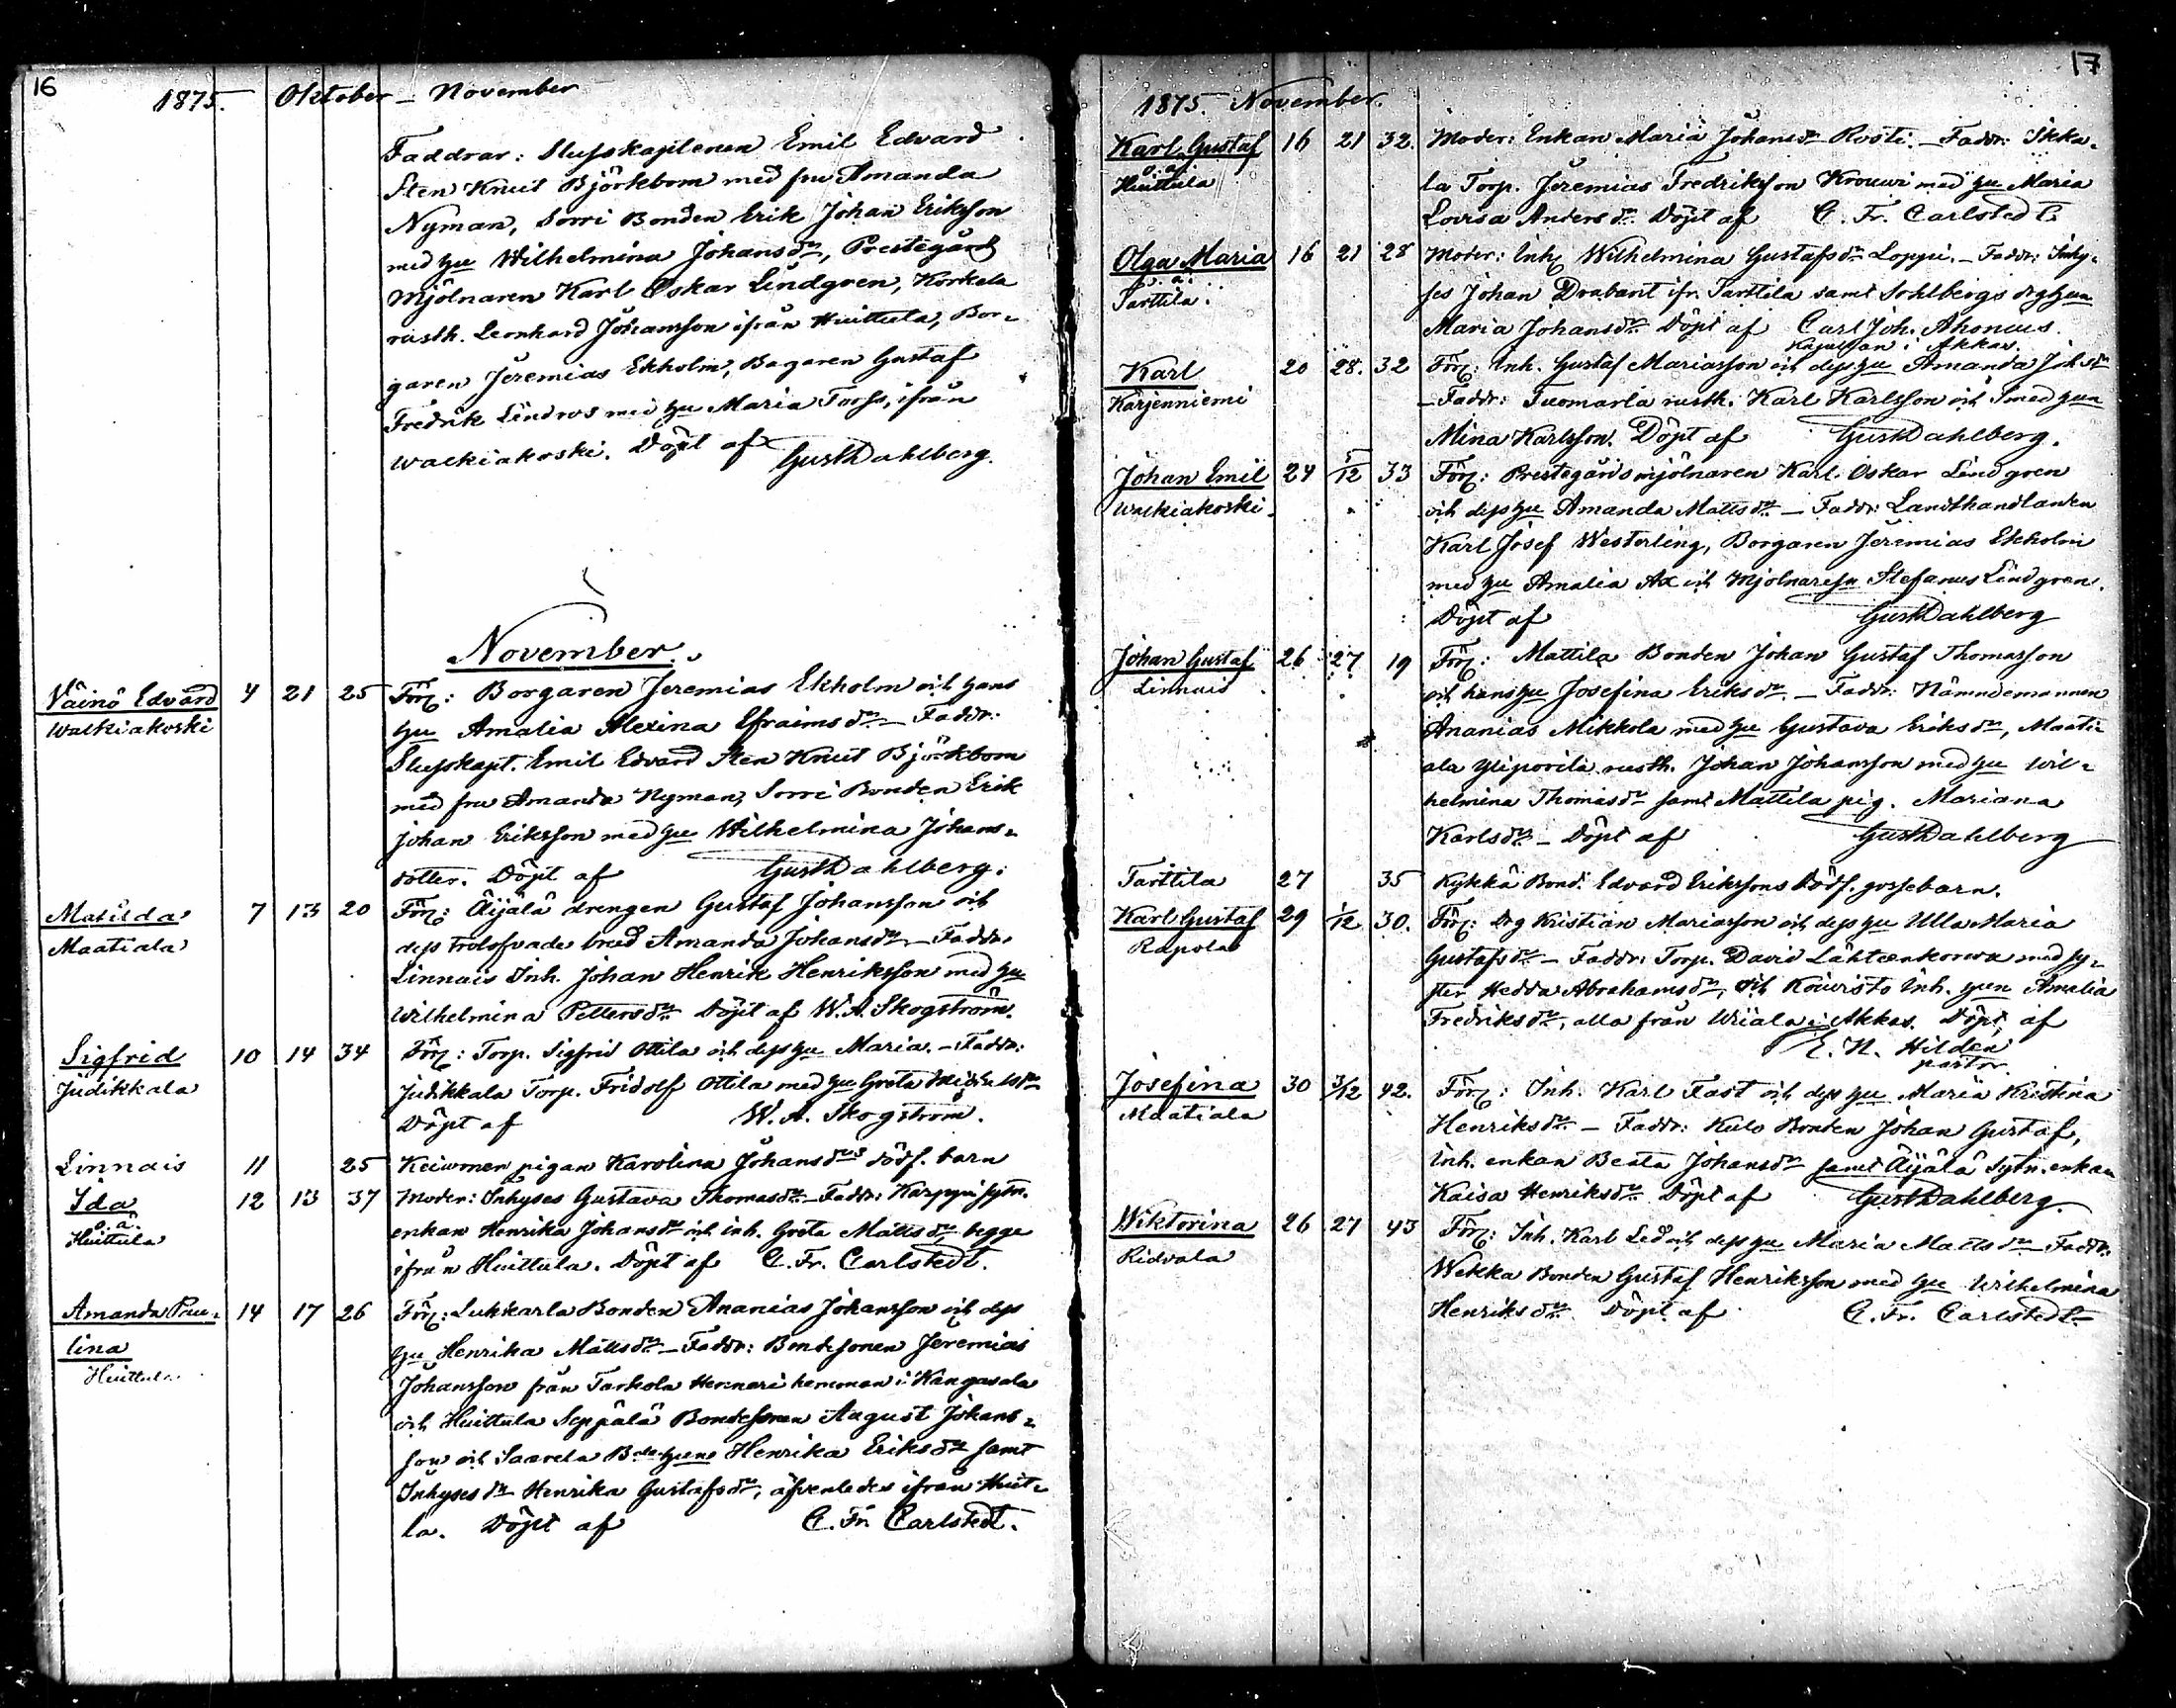 16
1875. Oktober – November
Faddrar: Slusskaptenen Emil Edvard
Sten Knut Björkbom med fru Amanda
Nyman, Sorri Bonden Erik Johan Eriksson
med hu Wilhelmina Johansdr, Prestegårds
Mjölnaren Karl Oskar Lindgren, Korkela
rusth. Leonhard Johansson ifrån Huittula, Bor-
garen Jeremias Ekholm, Bagaren Gustaf
Fredrik Lindros med hu Maria Forss, ifrån
Walkiakoski. Döpt af Gust Dahlberg.
November.
Väinö Edvard 4 21 25 Förl: Borgaren Jeremias Ekholm och hans
Walkiakoski
hu Amalia Alexina Efraimsdr – Faddr:
Slusskapt. Emil Edvard Sten Knut Björkbom
med fru Amanda Nyman, Sorri Bonden Erik
Johan Eriksson med hu Wilhelmina Johans-
dotter. Döpt af Gust Dahlberg.
Matilda 7 13 20 Förl: Äijälä drengen Gustaf Johansson och
Maatiala
dess trolofvade brud Amanda Johansdr – Faddr.
Linnais Inh. Johan Henrik Henriksson med hu
Wilhelmina Pettersdr. Döpt af W. A. Skogström.
Sigfrid 10 14 34 Förl: Torp. Sigfrid Ottila och dess hu Maria. – Faddr:
Judikkala
Judikkala Torp. Fridolf Ottila med hu Greta
Döpt af W. A. Skogström.
Linnais 11 25 Keiwomen pigan Karolina Johansdrs dödf. barn
Ida 12 13 37 Moder: Inhyses Gustava Thomasdr – Faddr: Karppi sytn.
o. ä.
Huittula
enkan Henrika Johansdr och inh. Greta Mattsdr, begge
ifrån Huittula. Döpt af C. Fr. Carlstedt.
Amanda Pau- 14 17 26 Förl: Lukkarla Bonden Ananias Johansson och dess
lina
Huittula
hu Henrika Mattsdr – Faddr: Bondesonen Jeremias
Johansson från Tarkola hemman i Kangasala
och Huittula Seppälä Bondesonen August Johans-
son och Saarela Bde hun Henrika Eriksdr samt
Inhysesdr Henrika Gustafsdr, äfvenledes ifrån Huit-
la. Döpt af C. Fr. Carlstedt.
17
1875. November.
Karl Gustaf 16 21 32. Moder: Enkan Maria Johansdr Rosti. – Faddr: Ikka-
o. ä.
Huittula
la Torp. Jeremias Fredriksson Krouwi med hu Maria
Lovisa Andersdr. Döpt af C. Fr. Carlstedt.
Olga Maria 16 21 28 Moder: Inh. Wilhelmina Gustafsdr Loppi. – Faddr: Inhy-
o. ä.
Tarttila.
ses Johan Drabant ifr. Tarttila samt Sohlbergs drg hun
Maria Johansdr. Döpt af Carl Joh. Ahonius.
Kapellan i Akkas.
Karl 20 28. 32 Förl: Inh. Gustaf Mariasson och dess hu Amanda Johsdr
Karjenniemi
– Faddr: Tuomarla rusth. Karl Karlsson och Smed hun
Mina Karlsson. Döpt af Gust Dahlberg.
Johan Emil 24 5/12 33 Förl: Prestegårds mjölnaren Karl Oskar Lindgren
Walkiakoski.
och dess hu Amanda Mattsdr. – Faddr: Landthandlanden
Karl Josef Westerling, Borgaren Jeremias Ekholm
med hu Amalia Ax och Mjölnaren Stefanus Lindgren.
Döpt af Gust Dahlberg
Johan Gustaf 26 27 19 Förl: Mattila Bonden Johan Gustaf Thomasson
Linnais
och hans hu Josefina Eriksdr. – Faddr: Nämndemannen
Ananias Mikkola med hu Gustava Eriksdr, Maati-
ala Yliporila rusth. Johan Johansson med hu Wil-
helmina Thomasdr samt Mattila pig. Mariana
Karlsdr. – Döpt af Gust Dahlberg
Tarttila 27 35 Kykkä Bond. Edvard Erikssons Dödf. gossebarn.
Karl Gustaf 29 1/12 30. Förl: Drg Kristian Mariasson och dess hu Ulla Maria
Rapola
Gustafsdr – Faddr: Torp. David Lähteenkorwa med sy-
ster Hedda Abrahamsdr, och Koivisto Inh. hun Amalia
Fredriksdr, alla från Wiiala i Akkas. Döpt af
E. N. Hilden
pastor.
Josefina 30 3/12 42. Förl: Inh. Karl Fast och dess hu Maria Kristina
Maatiala
Henriksdr – Faddr: Kulo Bonden Johan Gustaf,
Inh. enkan Beata Johansdr samt Äijälä Sytn. enkan
Kaisa Henriksdr. Döpt af Gust Dahlberg.
Wiktorina 26 27 43 Förl: Inh. Karl Led och dess hu Maria Mattsdr – Faddr.
Ridvala
Wekka Bonden Gustaf Henriksson med hu Wilhelmina
Henriksdr. Döpt af C. Fr. Carlstedt.